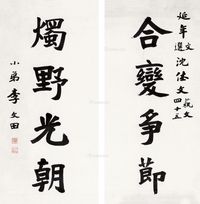 合變爭節
延年文
選沈休文
四十五
燭野光朝
小弟李文田